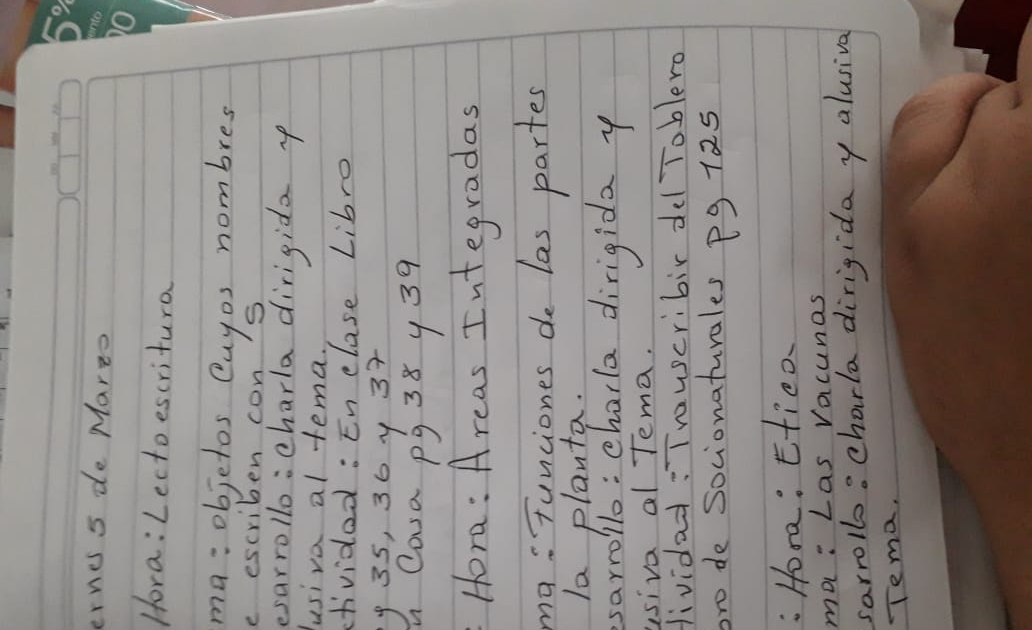 ernes 5 de Marzo
Hora: Lectoescritura
ma: objetos Cuyos nombres
e escriben con S
esarrollo: charla dirigida y
lusiva al tema.
ctividad: En clase Libro
g 35, 36 y 37
n Casa pg 38 y 39
: Hora: Areas Integradas
ma: Funciones de las partes
la planta.
esarrollo: charla dirigida y
usiva al Tema.
tividad: Transcribir del Tablero
bro de Socionaturales pg 125
: Hora: Etica
ma: Las Vacunas
sarrollo: charla dirigida y alusiva
Tema.
5%
00